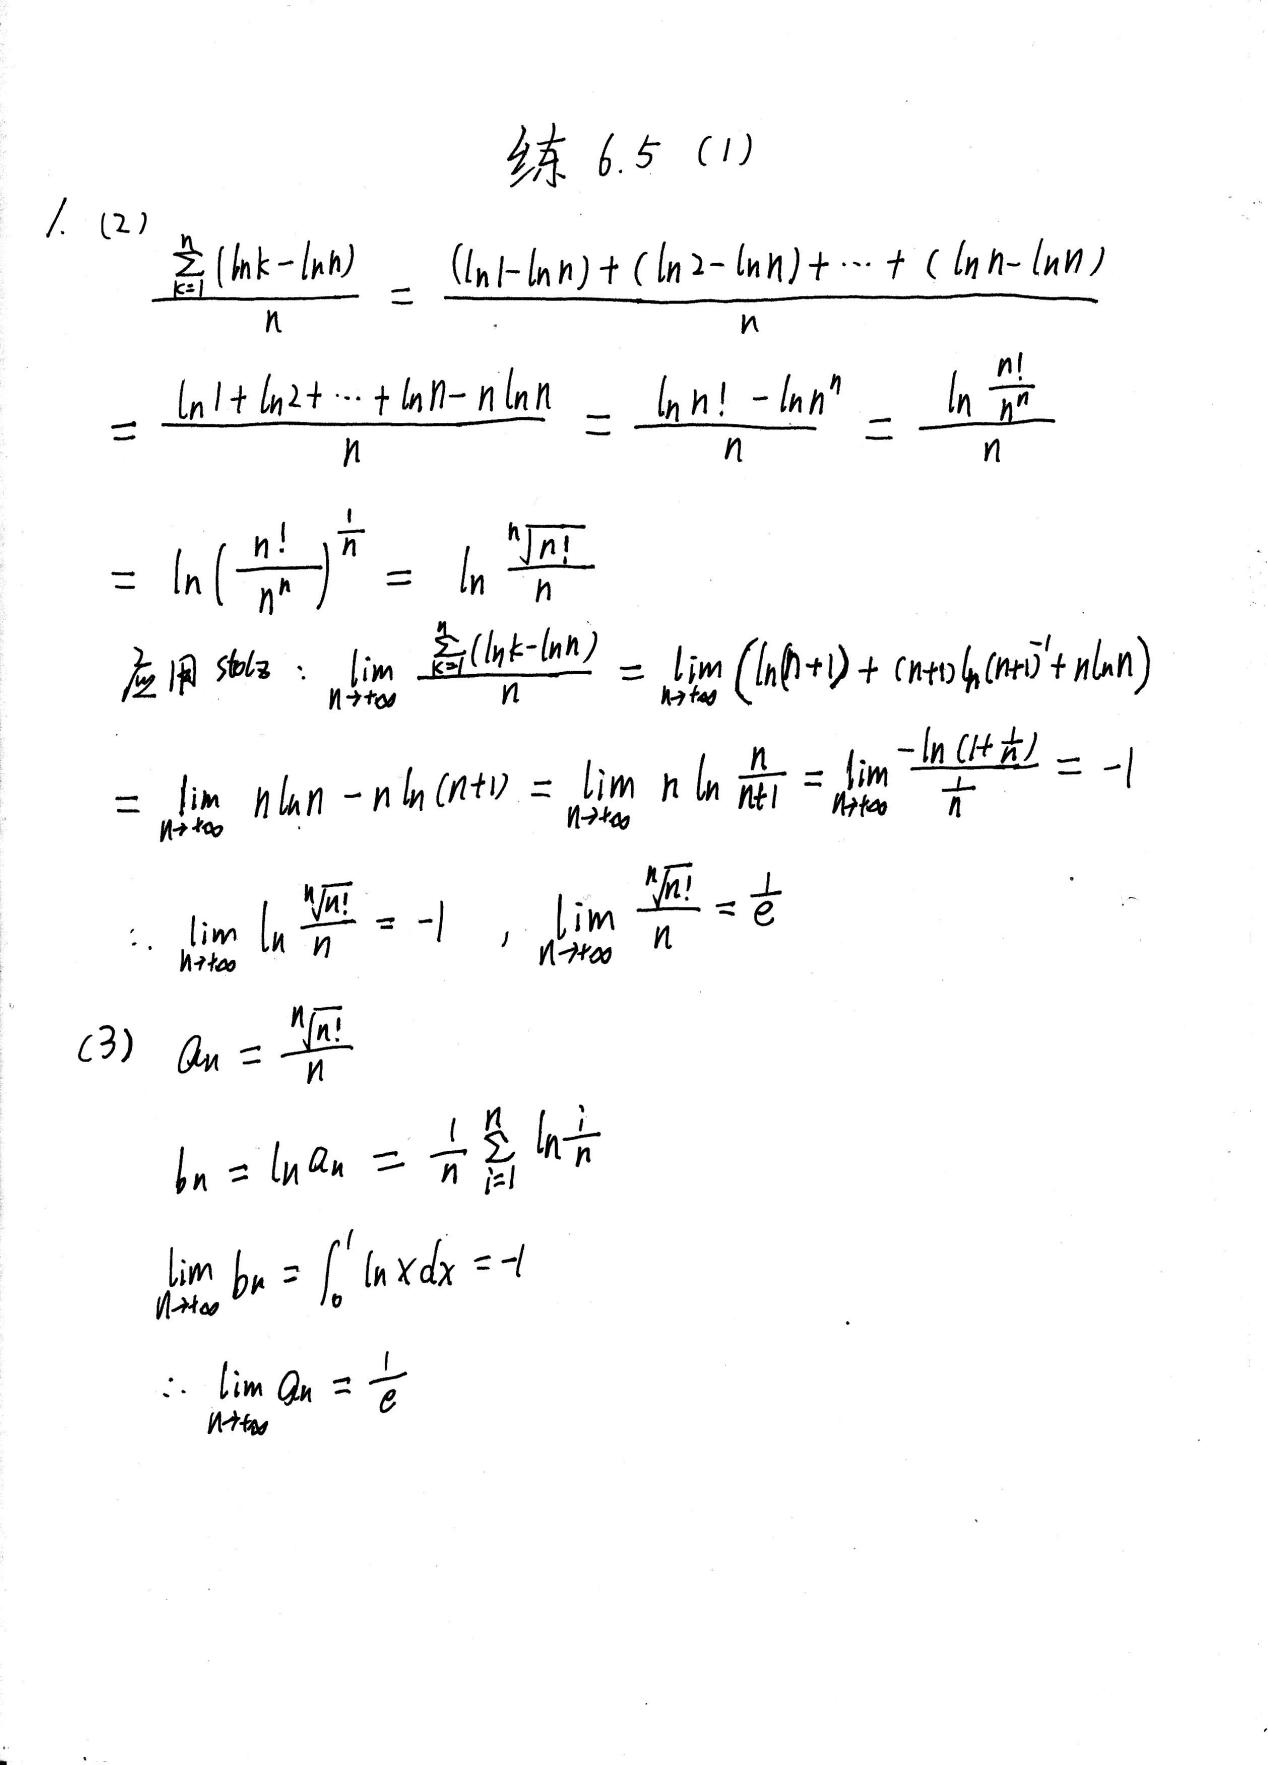 练 6.5 (1)
1. (2) \frac{\sum_{k=1}^{n}(\ln k-\ln n)}{n} = \frac{(\ln 1-\ln n)+(\ln 2-\ln n)+\cdots+(\ln n-\ln n)}{n}
= \frac{\ln 1+\ln 2+\cdots+\ln n-n\ln n}{n} = \frac{\ln n!-\ln n^n}{n} = \frac{\ln \frac{n!}{n^n}}{n}
= \ln(\frac{n!}{n^n})^{\frac{1}{n}} = \ln \frac{\sqrt[n]{n!}}{n}
应用 stolz : \lim_{n→+∞} \frac{\sum_{k=1}^{n}(\ln k-\ln n)}{n} = \lim_{n→+∞} (\ln(n+1)+(n+1)\ln(n+1)^{-1}+n\ln n)
= \lim_{n→+∞} n\ln n-n\ln(n+1) = \lim_{n→+∞} n\ln \frac{n}{n+1} = \lim_{n→+∞} \frac{-\ln(1+\frac{1}{n})}{\frac{1}{n}} = -1
∴ \lim_{n→+∞} \ln \frac{\sqrt[n]{n!}}{n} = -1 , \lim_{n→+∞} \frac{\sqrt[n]{n!}}{n} = \frac{1}{e}
(3) a_n = \frac{\sqrt[n]{n!}}{n}
b_n = \ln a_n = \frac{1}{n} \sum_{i=1}^{n} \ln \frac{i}{n}
\lim_{n→+∞} b_n = \int_0^1 \ln x dx = -1
∴ \lim_{n→+∞} a_n = \frac{1}{e}